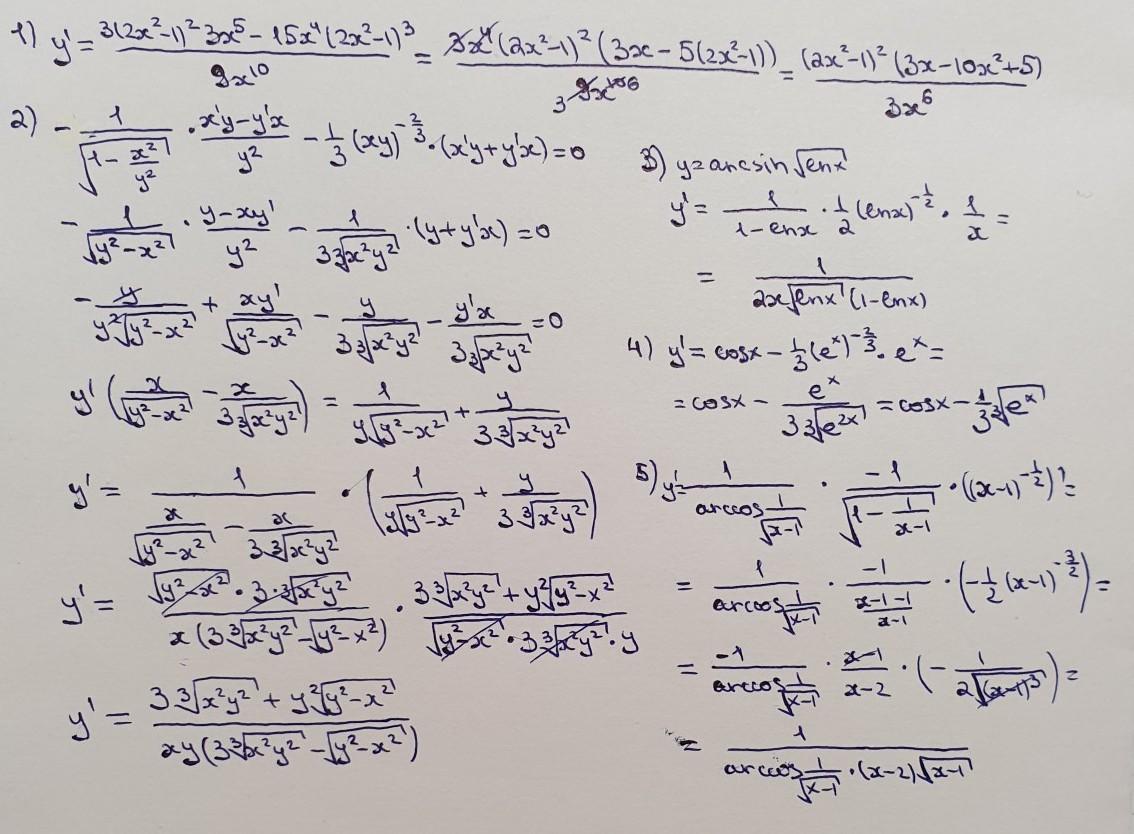 1) y' = (3(2x²-1)² 3x⁵ - 15x⁴(2x²-1)³)/(9x¹⁰) = (3x⁴(2x²-1)²(3x-5(2x²-1)))/(3 9x¹⁰ ⁶) = ((2x²-1)²(3x-10x²+5))/(3x⁶)
2) -1/√(1-x²/y²) · (x'y-y'x)/y² - 1/3 (xy)^(-2/3) · (x'y+y'x) = 0
-1/√(y²-x²) · (y-xy')/y² - 1/(3∛(x²y²)) · (y+y'x) = 0
-y/(y²√(y²-x²)) + xy'/√(y²-x²) - y/(3∛(x²y²)) - y'x/(3∛(x²y²)) = 0
y'(x/√(y²-x²) - x/(3∛(x²y²))) = 1/(y√(y²-x²)) + y/(3∛(x²y²))
y' = 1/(x/√(y²-x²) - x/(3∛(x²y²))) · (1/(y√(y²-x²)) + y/(3∛(x²y²)))
y' = (√(y²-x²) · 3·∛(x²y²))/(x(3∛(x²y²) - √(y²-x²))) · (3∛(x²y²) + y²√(y²-x²))/(√(y²-x²) · 3∛(x²y²) · y)
y' = (3∛(x²y²) + y²√(y²-x²))/(xy(3∛(x²y²) - √(y²-x²)))
3) y = arcsin√lnx
y' = 1/(1-lnx) · 1/2 (lnx)^(-1/2) · 1/x =
= 1/(2x√lnx (1-lnx))
4) y' = cosx - 1/3 (eˣ)^(-2/3) · eˣ =
= cosx - eˣ/(3∛(e²ˣ)) = cosx - 1/3 ∛(eˣ)
5) y' = 1/(arccos 1/√(x-1)) · -1/√(1-1/(x-1)) · ((x-1)^(-1/2))' =
= 1/(arccos 1/√(x-1)) · -1/((x-1-1)/(x-1)) · (-1/2 (x-1)^(-3/2)) =
= -1/(arccos 1/√(x-1)) · (x-1)/(x-2) · (-1/(2√(x-1)³)) =
= 1/(arccos 1/√(x-1) · (x-2)√(x-1))